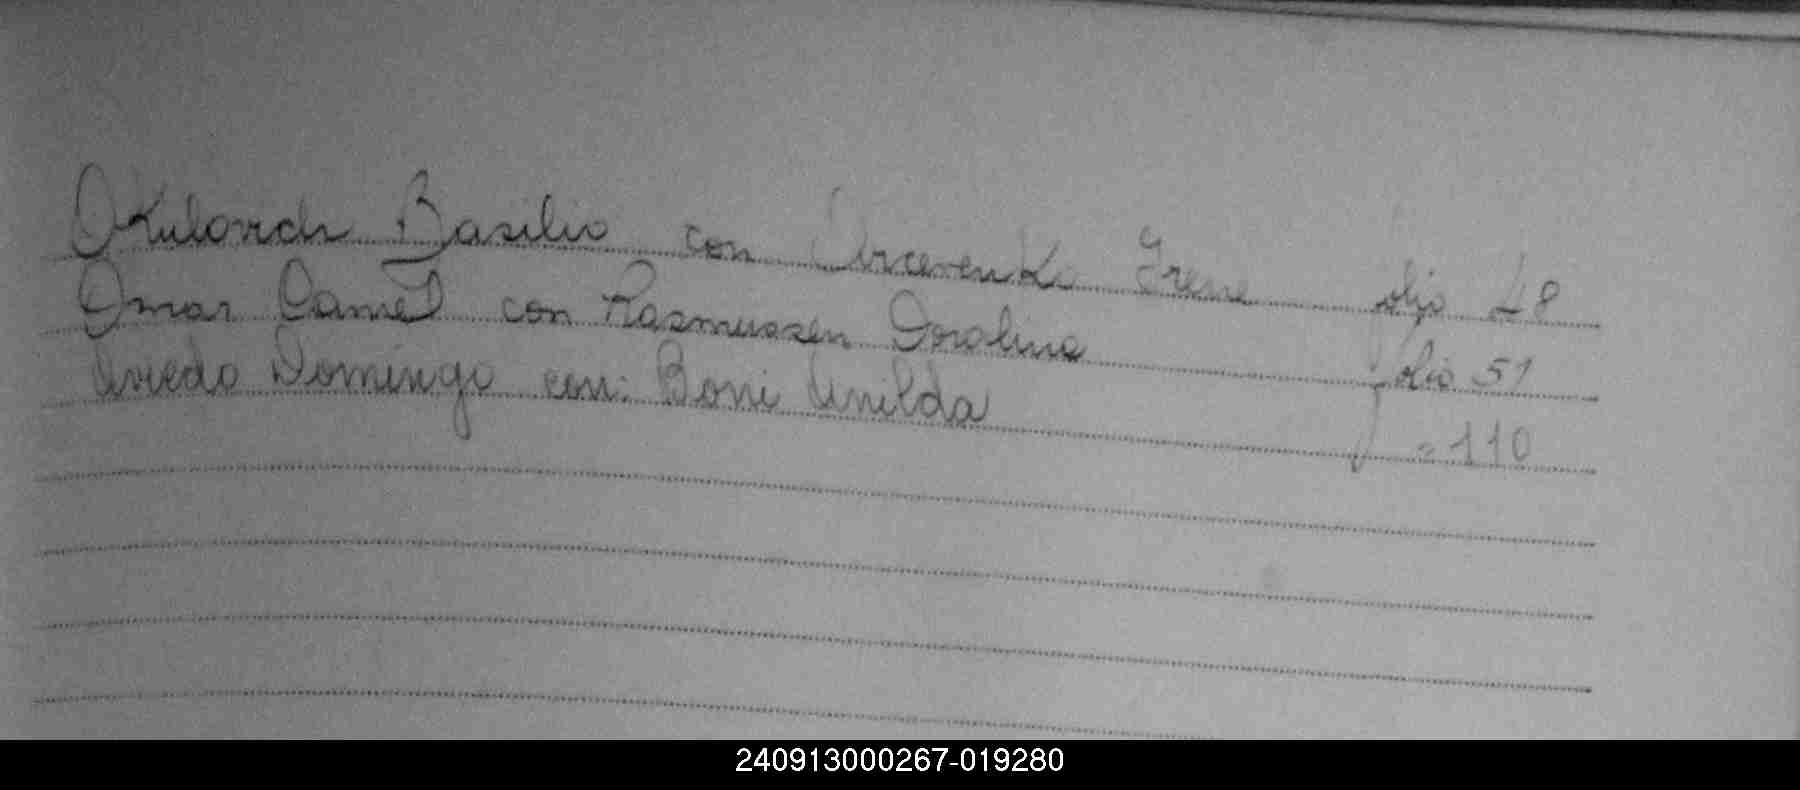 Okulovich Basilio con Arcevenko Irene folio 48
Omar Camel con Rasmussen Dorolina folio 51
Oviedo Domingo con: Boni Unilda " 110
240913000267-019280